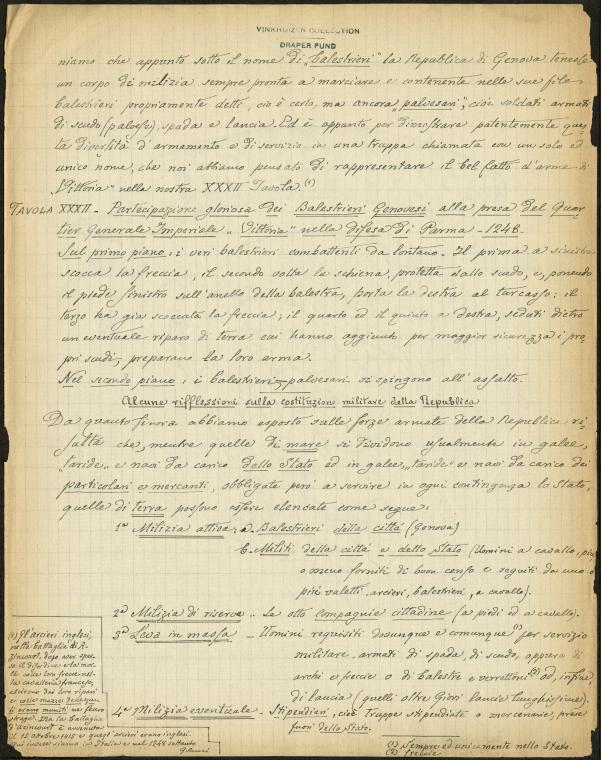 VINKHUIZEN COLLECTION
DRAPER FUND
niamo che appunto sotto il nome di "balestrieri" la Repubblica di Genova tenesse
un corpo di milizia sempre pronta a marciare e contenente nelle sue file
balestrieri propriamente detti, ciò è certo, ma ancora "palvesari", cioè soldati armati
di scudo (palvese), spada e lancia. Ed è appunto per dimostrare patentemente que-
sta diversità d'armamento e di servizio in una truppa chiamata con un solo ed
unico nome, che noi abbiamo pensato di rappresentare il bel fatto d'arme di
"Vittoria" nella nostra XXXII Tavola. (1)
TAVOLA XXXII - Partecipazione gloriosa dei Balestrieri Genovesi alla presa del Quar-
tier Generale Imperiale "Vittoria" nella difesa di Parma - 1248.
Sul primo piano: i veri balestrieri combattenti da lontano. Il primo a sinistra
scocca la freccia, il secondo volta le schiena, protetta dallo scudo, e, ponendo
il piede sinistro sull'anello della balestra, porta la destra al turcasso; il
terzo ha già scoccata la freccia; il quarto ed il quinto a destra, seduti dietro
un eventuale riparo di terra cui hanno aggiunto per maggior sicurezza i pro-
pri scudi, preparano la loro arma.
Nel secondo piano: i balestrieri-palvesari si spingono all'assalto.
Alcune rifflessioni sulla costituzione militare della Repubblica
Da quanto finora abbiamo esposto sulle forze armate della Repubblica, ri-
sulta che, mentre quelle di mare si dividono usualmente in galee,
"taride" e navi da carico dello Stato ed in galee, "taride" e navi da carico dei
particolari e mercanti, obbligate però a servire in ogni contingenza lo Stato,
quelle di terra possono essere elencate come segue:
1a Milizia attiva: a. Balestrieri della città (Genova)
b. Militi della città e dello Stato (Uomini a cavallo, più
o meno forniti di buon censo e seguiti da uno o
più valletti, arcieri, balestrieri, a cavallo).
2a Milizia di riserva - Le otto compagnie cittadine (a piedi ed a cavallo).
3a Leva in massa - Uomini requisiti dovunque e comunque (1) per servizio
militare, armati di spada, di scudo, oppure di
archi e freccie o di balestre e verrettoni (2) od, infine,
di lancia (quelli oltre Giovi lancie lunghissime).
4a Milizia eventuale - Stipendiari, cioè truppe stipendiate o mercenarie, prese
fuori dello Stato.
(1) Gl'arcieri inglesi,
nella battaglia di A-
zincourt, dopo aver spe-
so il disordine e la mor-
te colle loro freccie nel-
la cavalleria francese,
escirono dai loro ripari
e colle mazze
erano muniti ne fecero
strage. Ma la battaglia
d'Azincourt è avvenuta
il 15 Ottobre 1415 e quegl'arcieri erano inglesi.
Qui invece siamo in Italia e nel 1248 soltanto
(1) Sempre ed unicamente nello Stato.
(2) freccie